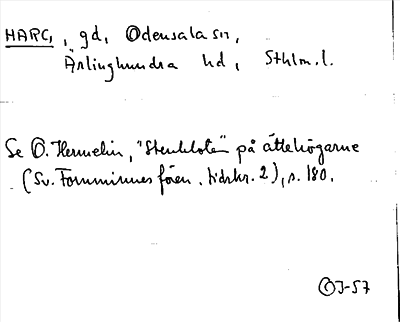 HARG, gd, Odensala sn,
Ärlinghundra hd, Sthlm.l.
Se O. Hermelin, "Stenklotē" på ättehögarne
(Sv. Fornminnesfören. tidskr. 2), s. 180.
©J-57